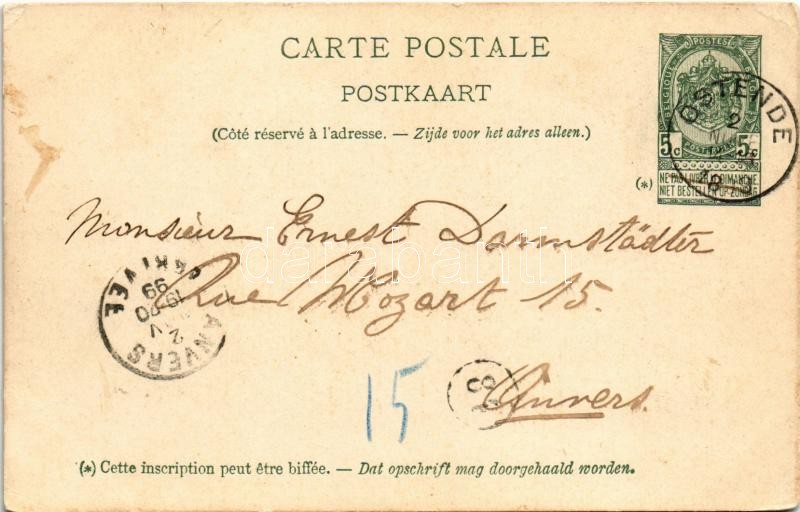 CARTE POSTALE
POSTKAART
(Côté réservé à l'adresse. — Zijde voor het adres alleen.)
POSTES
BELGIQUE
5 c 5 c
(*) NE PAS LIVRER LE DIMANCHE
NIET BESTELLEN OP ZONDAG
OSTENDE
2
18
Monsieur Ernest Darmstädter
Rue Mozart 15.
Anvers.
ANVERS
2
19-20
99
ARRIVÉE
15
(*) Cette inscription peut être biffée. — Dat opschrift mag doorgehaald worden.
darabanth